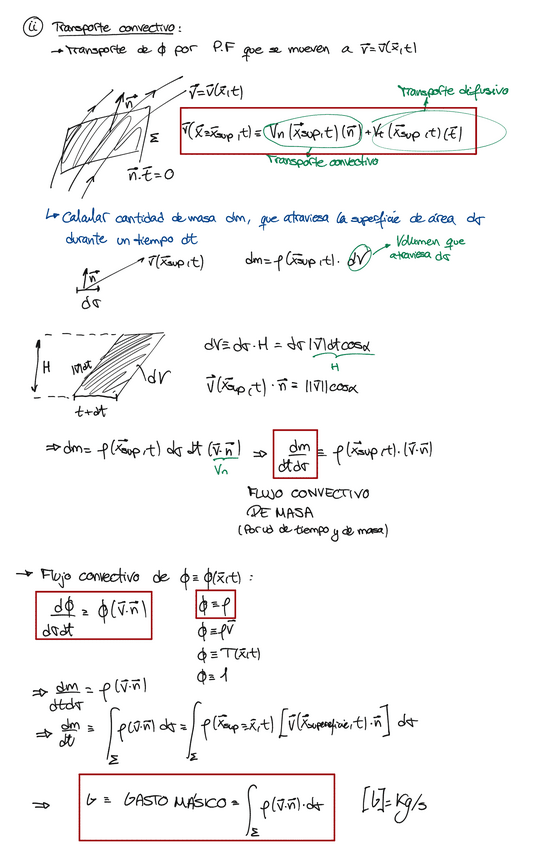 ii) Transporte convectivo:
→ Transporte de ϕ por P.F que se mueven a v⃗ = v⃗(x⃗,t)
n⃗
v⃗ = v⃗(x⃗,t)
Σ
n⃗·t⃗ = 0
Transporte difusivo
v⃗(x⃗=x⃗sup,t) = Vn(x⃗sup,t)(n⃗) + Vt(x⃗sup,t)(t⃗)
Transporte convectivo
↳ Calcular cantidad de masa dm, que atraviesa la superficie de área dσ
durante un tiempo dt
n⃗
v⃗(x⃗sup,t)
dσ
dm = ρ(x⃗sup,t)· dV
Volumen que
atraviesa dσ
H
|v⃗|dt
dV
t+dt
dV ≡ dσ·H = dσ |v⃗|dt cosα
H
v⃗(x⃗sup,t)·n⃗ = ||v⃗||cosα
⇒ dm = ρ(x⃗sup,t) dσ dt (v⃗·n⃗) ⇒ dm/dtdσ ≡ ρ(x⃗sup,t)·(v⃗·n⃗)
Vn
FLUJO CONVECTIVO
DE MASA
(Por ud de tiempo y de masa)
→ Flujo convectivo de ϕ ≡ ϕ(x⃗,t):
dϕ/dσdt ≡ ϕ(v⃗·n⃗)
ϕ ≡ ρ
ϕ ≡ ρv⃗
ϕ ≡ T(x⃗,t)
ϕ ≡ 1
⇒ dm/dtdσ = ρ(v⃗·n⃗)
⇒ dm/dt ≡ ∫Σ ρ(v⃗·n⃗) dσ = ∫Σ ρ(x⃗sup=x⃗,t) [v⃗(x⃗superficie,t)·n⃗] dσ
⇒ G ≡ GASTO MÁSICO = ∫Σ ρ(v⃗·n⃗)·dσ [G] = Kg/s